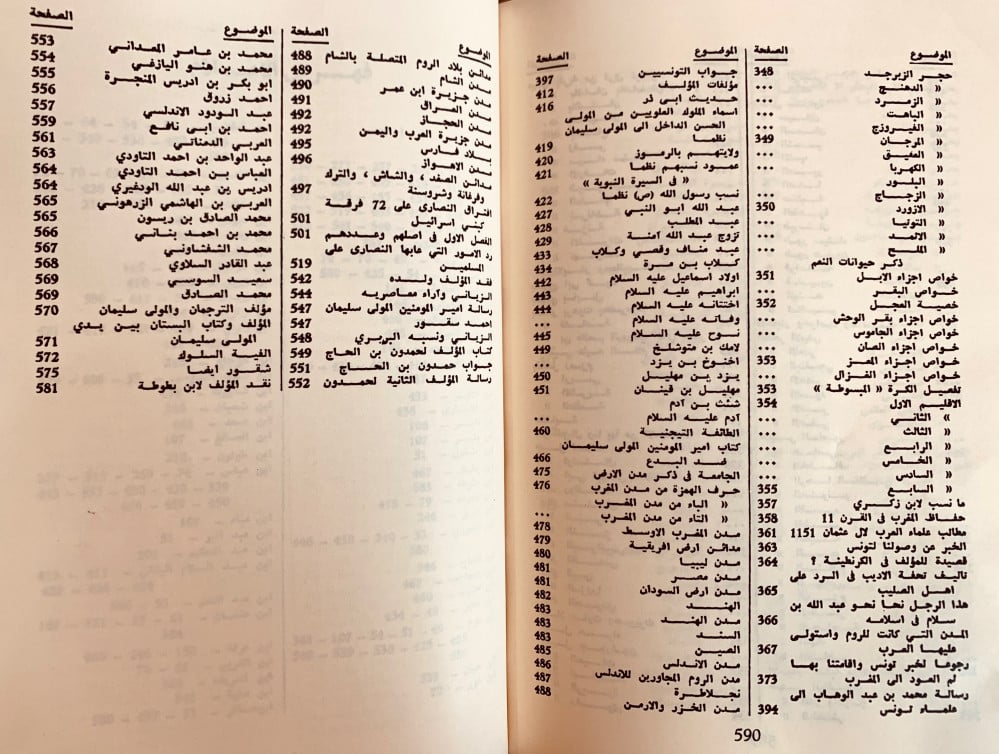 الموضوع الصفحة
حجر الزبرجد 348
« الدهنج ...
« الزمرد ...
« الباهت ...
« الفيروزج ...
« المرجان 349
« العقيق ...
« الكهربا ...
« البلور ...
« الزجاج ...
« الازورد 350
« التوتيا ...
« الاثمد ...
« الملح ...
ذكر حيوانات النعم
خواص اجزاء الابل 351
خواص البقر ...
خصية العجل 352
خواص اجزاء بقر الوحش ...
خواص اجزاء الجاموس ...
خواص اجزاء الضان ...
خواص اجزاء المعز 353
خواص اجزاء الغزال ...
تفصيل الكرة « المبسوطة » 353
الاقليم الاول 354
» الثاني ...
» الثالث ...
» الرابع ...
» الخامس ...
» السادس ...
» السابع 355
ما نسب لابن زكري 357
حفاظ المغرب فى القرن 11 358
مطالب علماء العرب لال عثمان 1151 361
الخبر عن وصولنا لتونس 363
قصيدة للمؤلف فى الكرنطينة ؟ 364
تاليف تحفة الاديب فى الرد على
اهل الصليب 365
هذا الرجل نحا نحو عبد الله بن
سلام فى اسلامه 366
المدن التي كانت للروم واستولى
عليها العرب 367
رجوعا لخبر تونس واقامتنا بها
لم العود الى المغرب 373
رسالة محمد بن عبد الوهاب الى
علماء تونس 394
الموضوع الصفحة
جواب التونسيين 397
مؤلفات المؤلف 412
حديث ابى ذر 416
اسماء الملوك العلويين من المولى
الحسن الداخل الى المولى سليمان
نظما 419
ولايتهم بالرموز 420
عمود نسبهم نظما 421
« فى السيرة النبوية »
نسب رسول الله (ص) نظما 422
عبد الله ابو النبي 427
عبد المطلب 428
تزوج عبد الله آمنة 429
عبد مناف وقصي وكلاب 433
كلاب بن مرة 434
اولاد اسماعيل عليه السلام 442
ابراهيم عليه السلام 443
اختتانه عليه السلام 444
وفاته عليه السلام ...
نوح عليه السلام 445
لامك بن متوشلخ 449
اخنوخ بن يزد ...
يزد بن مهليل 450
مهليل بن قينان 451
شئث بن آدم
آدم عليه السلام ...
الطائفة التيجنية 460
كتاب امير المومنين المولى سليمان
ضد البدع 466
الجامعة فى ذكر مدن الارض 475
حرف الهمزة من مدن المغرب 476
« الباء من مدن المغرب
« التاء من مدن المغرب ...
مدن المغرب الاوسط 478
مدائن ارض افريقية 479
مدن ليبيا 480
مدن مصر 481
مدن ارض السودان 481
الهند 482
مدن الهند 483
السند 483
الصين 485
مدن الاندلس 486
مدن الروم المجاورين للاندلس 487
نجلاطرة 488
مدن الخزر والارمن
590
الموضوع الصفحة
مدائن بلاد الروم المتصلة بالشام 488
مدن الشام 489
مدن جزيرة ابن عمر 490
مدن العراق 491
مدن الحجاز 492
مدن جزيرة العرب واليمن 492
بلاد فارس 495
مدن الاهواز 496
مدائن الصغد ، والشاش ، والترك
وفرغانة وشروسنة 497
افتراق النصارى على 72 فرقة
كبني اسرائيل 501
الفصل الاول فى اصلهم وعددهم 501
رد الامور التي عابها النصارى على
المسلمين 519
فقد المؤلف ولده 542
الزياني وآراء معاصريه 544
رسالة امير المومنين المولى سليمان 547
احمد سقور 547
الزياني ونسبه البربري 548
كتاب المؤلف لحمدون بن الحاج 549
جواب حمدون بن الحاج 551
رسالة المؤلف الثانية لحمدون 552
الموضوع الصفحة
محمد بن عامر المعداني 553
محمد بن هنو اليازغي 554
ابو بكر بن ادريس المنجرة 555
احمد زروق 556
عبد الودود الاندلسي 557
احمد بن ابى نافع 559
العربي الدمناتي 561
عبد الواحد بن احمد التاودي 563
العباس بن احمد التاودي 564
ادريس بن عبد الله الودغيري 564
العربي بن الهاشمي الزرهوني 565
محمد الصادق بن ريسون 565
محمد بن احمد بناني 566
محمد الشفشاوني 567
عبد القادر السلاوي 568
سعيد السوسي 569
محمد الصادق 569
مؤلف الترجمان والمولى سليمان 570
المؤلف وكتاب البستان بين يدي
المولى سليمان 571
الفية السلوك 572
شقور ايضا 575
نقد المؤلف لابن بطوطة 581